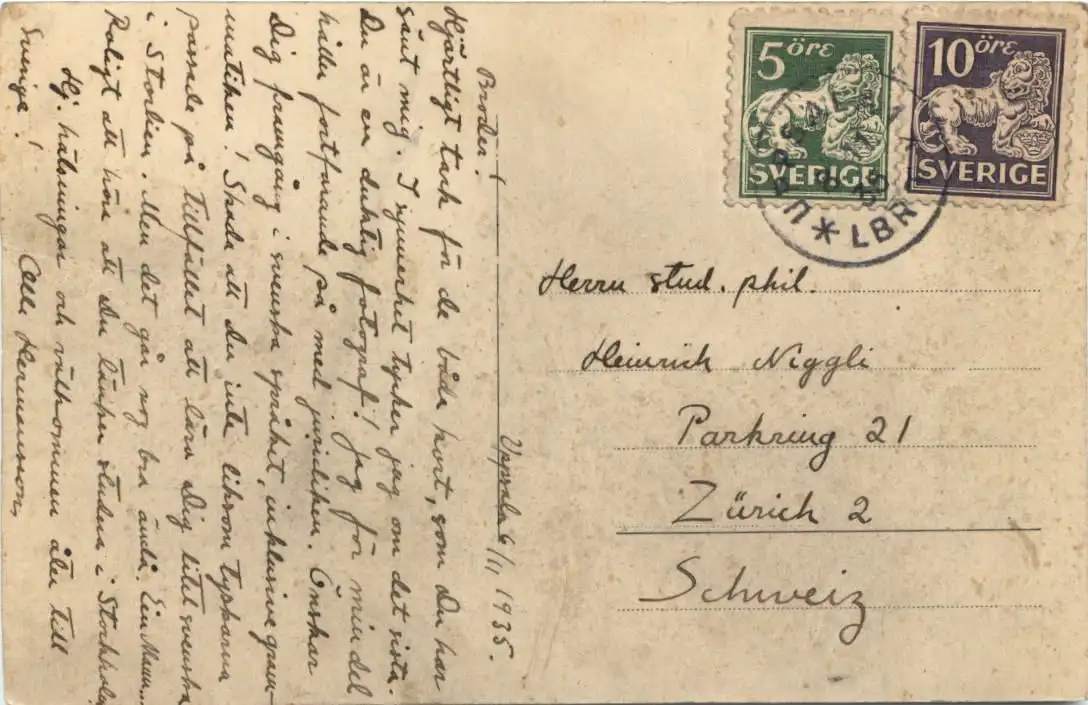 Uppsala 6/11 1935.
Broder!
Hjärtligt tack för de båda kort, som Du har
sänt mig. I synnerhet tycker jag om det sista.
Du är en duktig fotograf! Jag för min del
håller fortfarande på med juridiken. Önskar
Dig framgång i svenska språket, inklusive gram-
matiken! Skada att du inte liksom tyskarna
passade på tillfället att lära Dig litet svenska
i Storlien. Men det går nog bra ändå. Ein Mann...
Roligt att höra att Du träffar studen i Stockholm
Hj. hälsningar och välkommen åter till
Sverige! Olle Hermansson
5 öre
SVERIGE
10 öre
SVERIGE
UPPSALA
LBR
Herrn stud. phil.
Heinrich Niggli
Parkring 21
Zürich 2
Schweiz